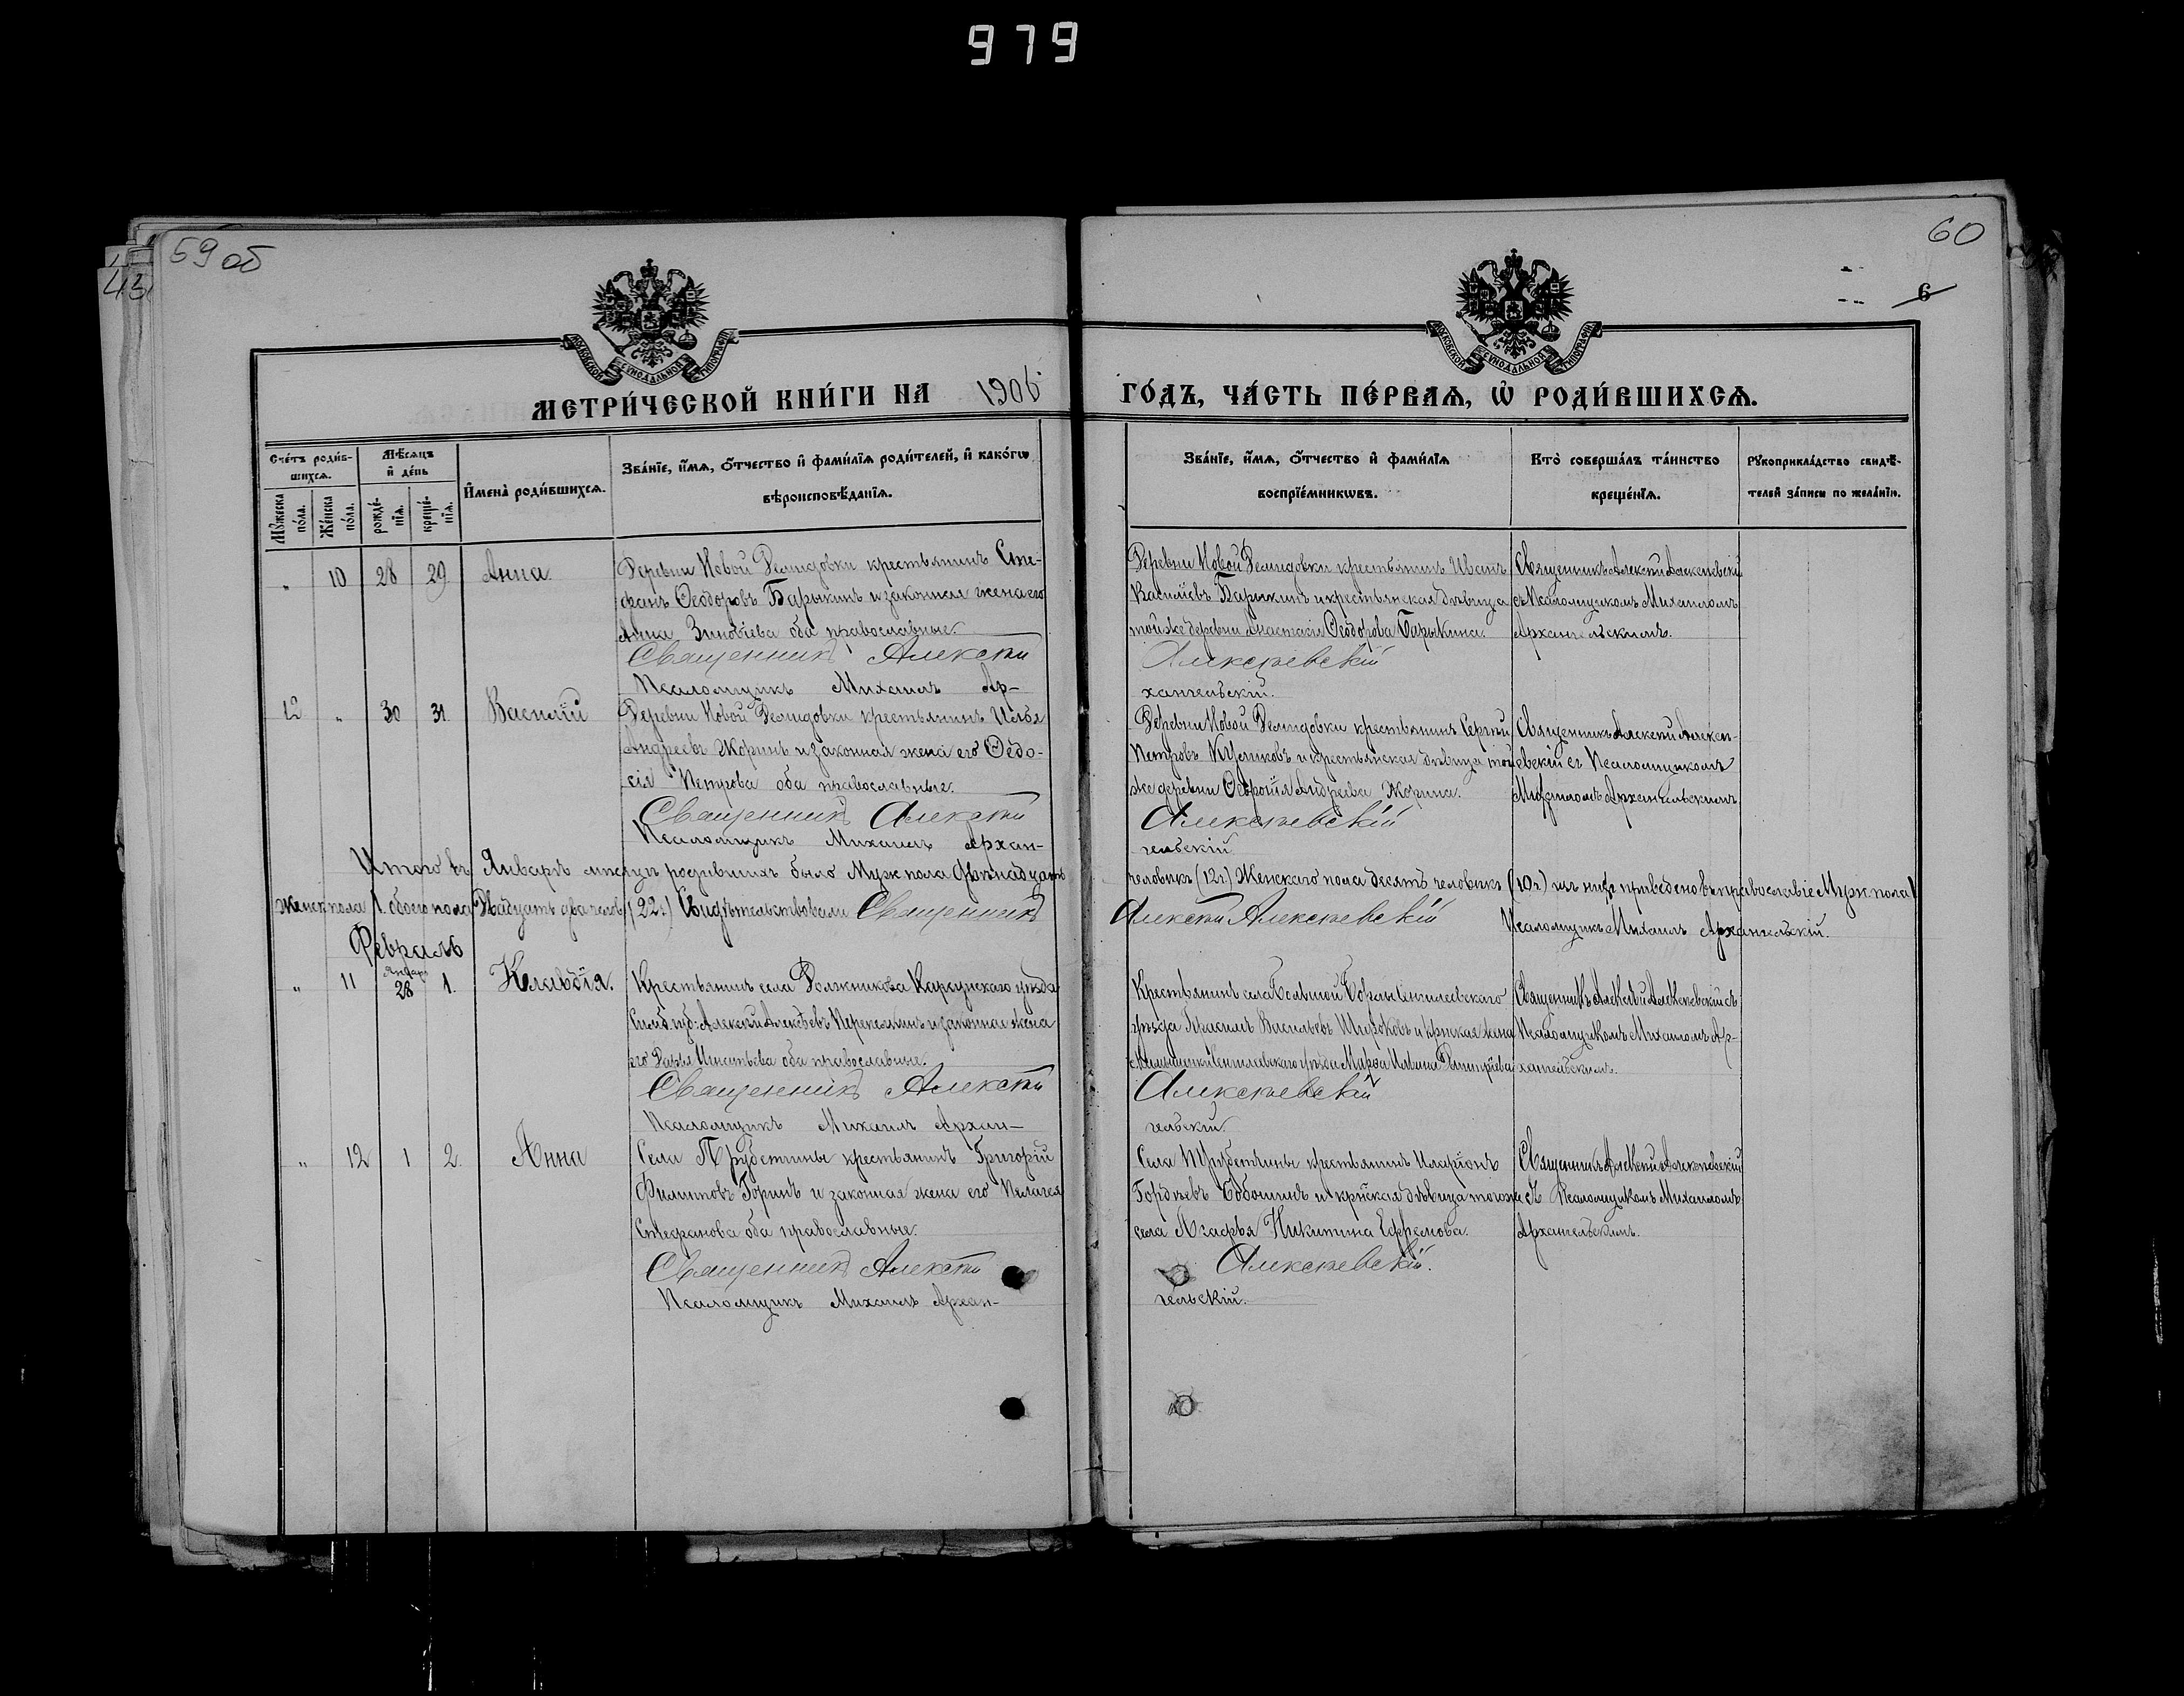 979
59 об
43
60
6
МОСКОВСКОЙ СѴНОДАЛЬНОЙ ТИПОГРАФІИ
МОСКОВСКОЙ СѴНОДАЛЬНОЙ ТИПОГРАФІИ
МЕТРИ́ЧЕСКОЙ КНИ́ГИ НА 1906 ГО́ДЪ, ЧА́СТЬ ПЕ́РВАѦ, Ѡ҆ РОДИ́ВШИХСѦ.
Сче́тъ роди́в-
шихсѧ.
Мꙋжеска по́ла.
Же́нска по́ла.
Мѣ́сѧцъ
и҆ де́нь
рожде́-
нїѧ.
креще́-
нїѧ.
И҆мена̀ роди́вшихсѧ.
Зва́нїе, и҆́мѧ, ѻ҆́тчество и҆ фами́лїѧ роди́телей, и҆ како́гѡ
вѣроисповѣ́данїѧ.
Зва́нїе, и҆́мѧ, ѻ҆́тчество и҆ фами́лїѧ
воспрїе́мникѡвъ.
Кто̀ соверша́лъ та́инство
креще́нїѧ.
Рꙋкоприкла́дство свидѣ́-
телей за́писи по жела́нїю.
" 10 28 29 Анна
Деревни Новой Демидовки крестьянинъ Сте-
фанъ Ѳеодоровъ Барыкинъ и законная жена его
Анна Зиновіева оба православные.
Священникъ Алексѣй
Псаломщикъ Михаилъ Ар-
Деревни Новой Демидовки крестьянинъ Иванъ
Васильевъ Барыкинъ и крестьянская дѣвица
той же деревни Анастасія Ѳеодорова Барыкина.
Алексѣевскій
хангельскій.
Священникъ Алексѣй Алексѣевскій
съ Псаломщикомъ Михаиломъ
Архангельскимъ.
12 " 30 31 Василій
Деревни Новой Демидовки крестьянинъ Илья
Андреевъ Жоринъ и законная жена его Ѳедо-
сія Петрова оба православные.
Священникъ Алексѣй
Псаломщикъ Михаилъ Архан-
Деревни Новой Демидовки крестьянинъ Сергѣй
Петровъ и крестьянская дѣвица той
же деревни Андреева Жорина.
Алексѣевскій
гельскій
Священникъ Алексѣй Алексѣ-
евскій съ Псаломщикомъ
Михаиломъ Архангельскимъ
Итого въ Январѣ мѣсяцѣ родившихъ было Муж. пола двѣнадцать
человѣкъ (12 ч.) Женскаго пола десять человѣкъ (10 ч.) изъ нихъ приведено въ православіе Муж. пола 1
Женск пола 1. обоего пола Двадцать два челов. (22 ч.) Свидѣтельствовали Священникъ
Алексѣй Алексѣевскій Псаломщикъ Михаилъ Архангельскій.
Февраль
" 11 Январ 28 1. Клавдія.
Крестьянинъ села Должникова Карсунскаго уѣзда
Симб. губ: Алексѣй Алексѣевъ и законная жена
его Дарья Игнатьева оба православные.
Священникъ Алексѣй
Псаломщикъ Михаилъ Архан-
Крестьянинъ села Большой Борлы Сенгилеевскаго
уѣзда Герасимъ Васильевъ Широковъ и жена
Сенгилеевскаго уѣзда Марья Ильина Димитріева
Алексѣевскій
гельскій.
Священникъ Алексѣй Алексѣевскій съ
Псаломщикомъ Михаиломъ Ар-
хангельскимъ.
" 12 1 2. Анна
Села Трубетчины крестьянинъ Григорій
Филиповъ Горинъ и законная жена его Пелагея
Стефанова оба православные.
Священникъ Алексѣй
Псаломщикъ Михаилъ Архан-
Села Трубетчины крестьянинъ Иларіонъ
Гордѣевъ и дѣвица того же
села Агафья Никитина Ефремова.
Алексѣевскій.
гельскій.
Священникъ Алексѣй Алексѣевскій
съ Псаломщикомъ Михаиломъ
Архангельскимъ.